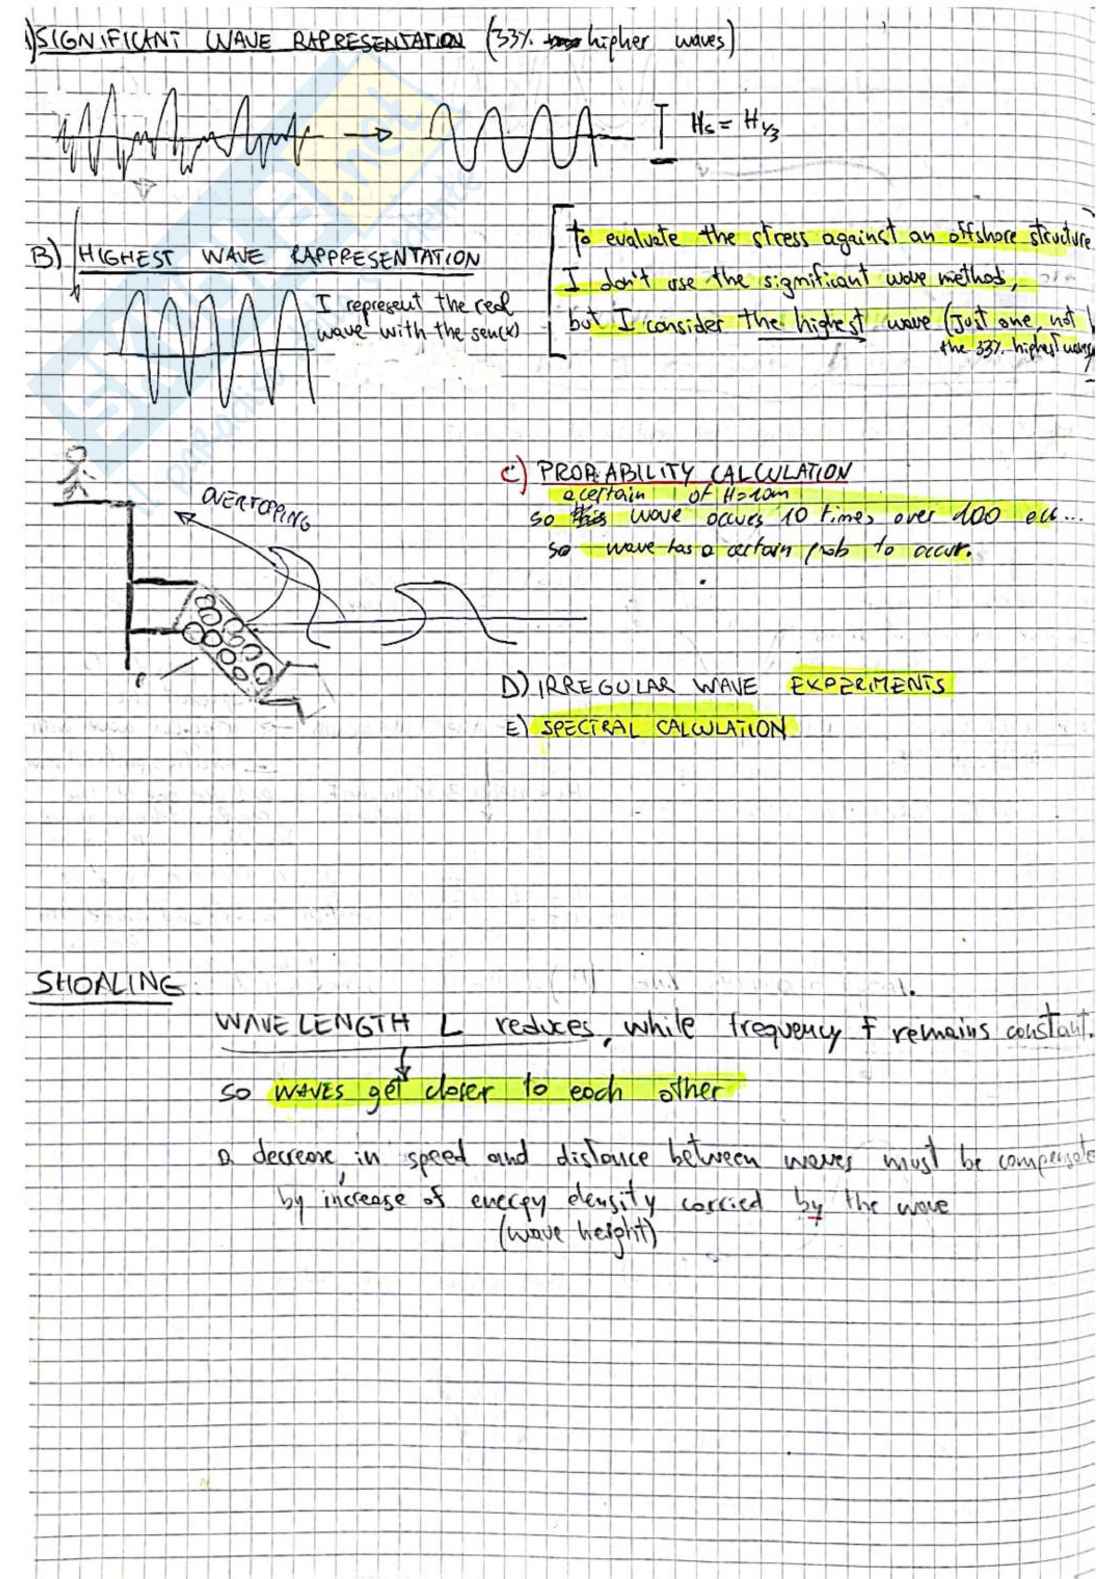 A) SIGNIFICANT WAVE RAPRESENTATION (33% higher waves)
Hs = H1/3
B) HIGHEST WAVE RAPPRESENTATION
I represent the real
wave with the sen(x)
to evaluate the stress against an offshore structure
I don't use the significant wave method,
but I consider the highest wave (Just one, not
the 33% highest waves
OVERTOPPING
C) PROBABILITY CALCULATION
a certain of H=10m
so wave occurs 10 times over 100 ecc...
so wave has a certain prob to occur.
D) IRREGULAR WAVE EXPERIMENTS
E) SPECTRAL CALCULATION
SHOALING
WAVELENGTH L reduces, while frequency f remains constant.
so WAVES get closer to each other
a decrease in speed and distance between waves must be compensate
by increase of energy density carried by the wave
(wave height)